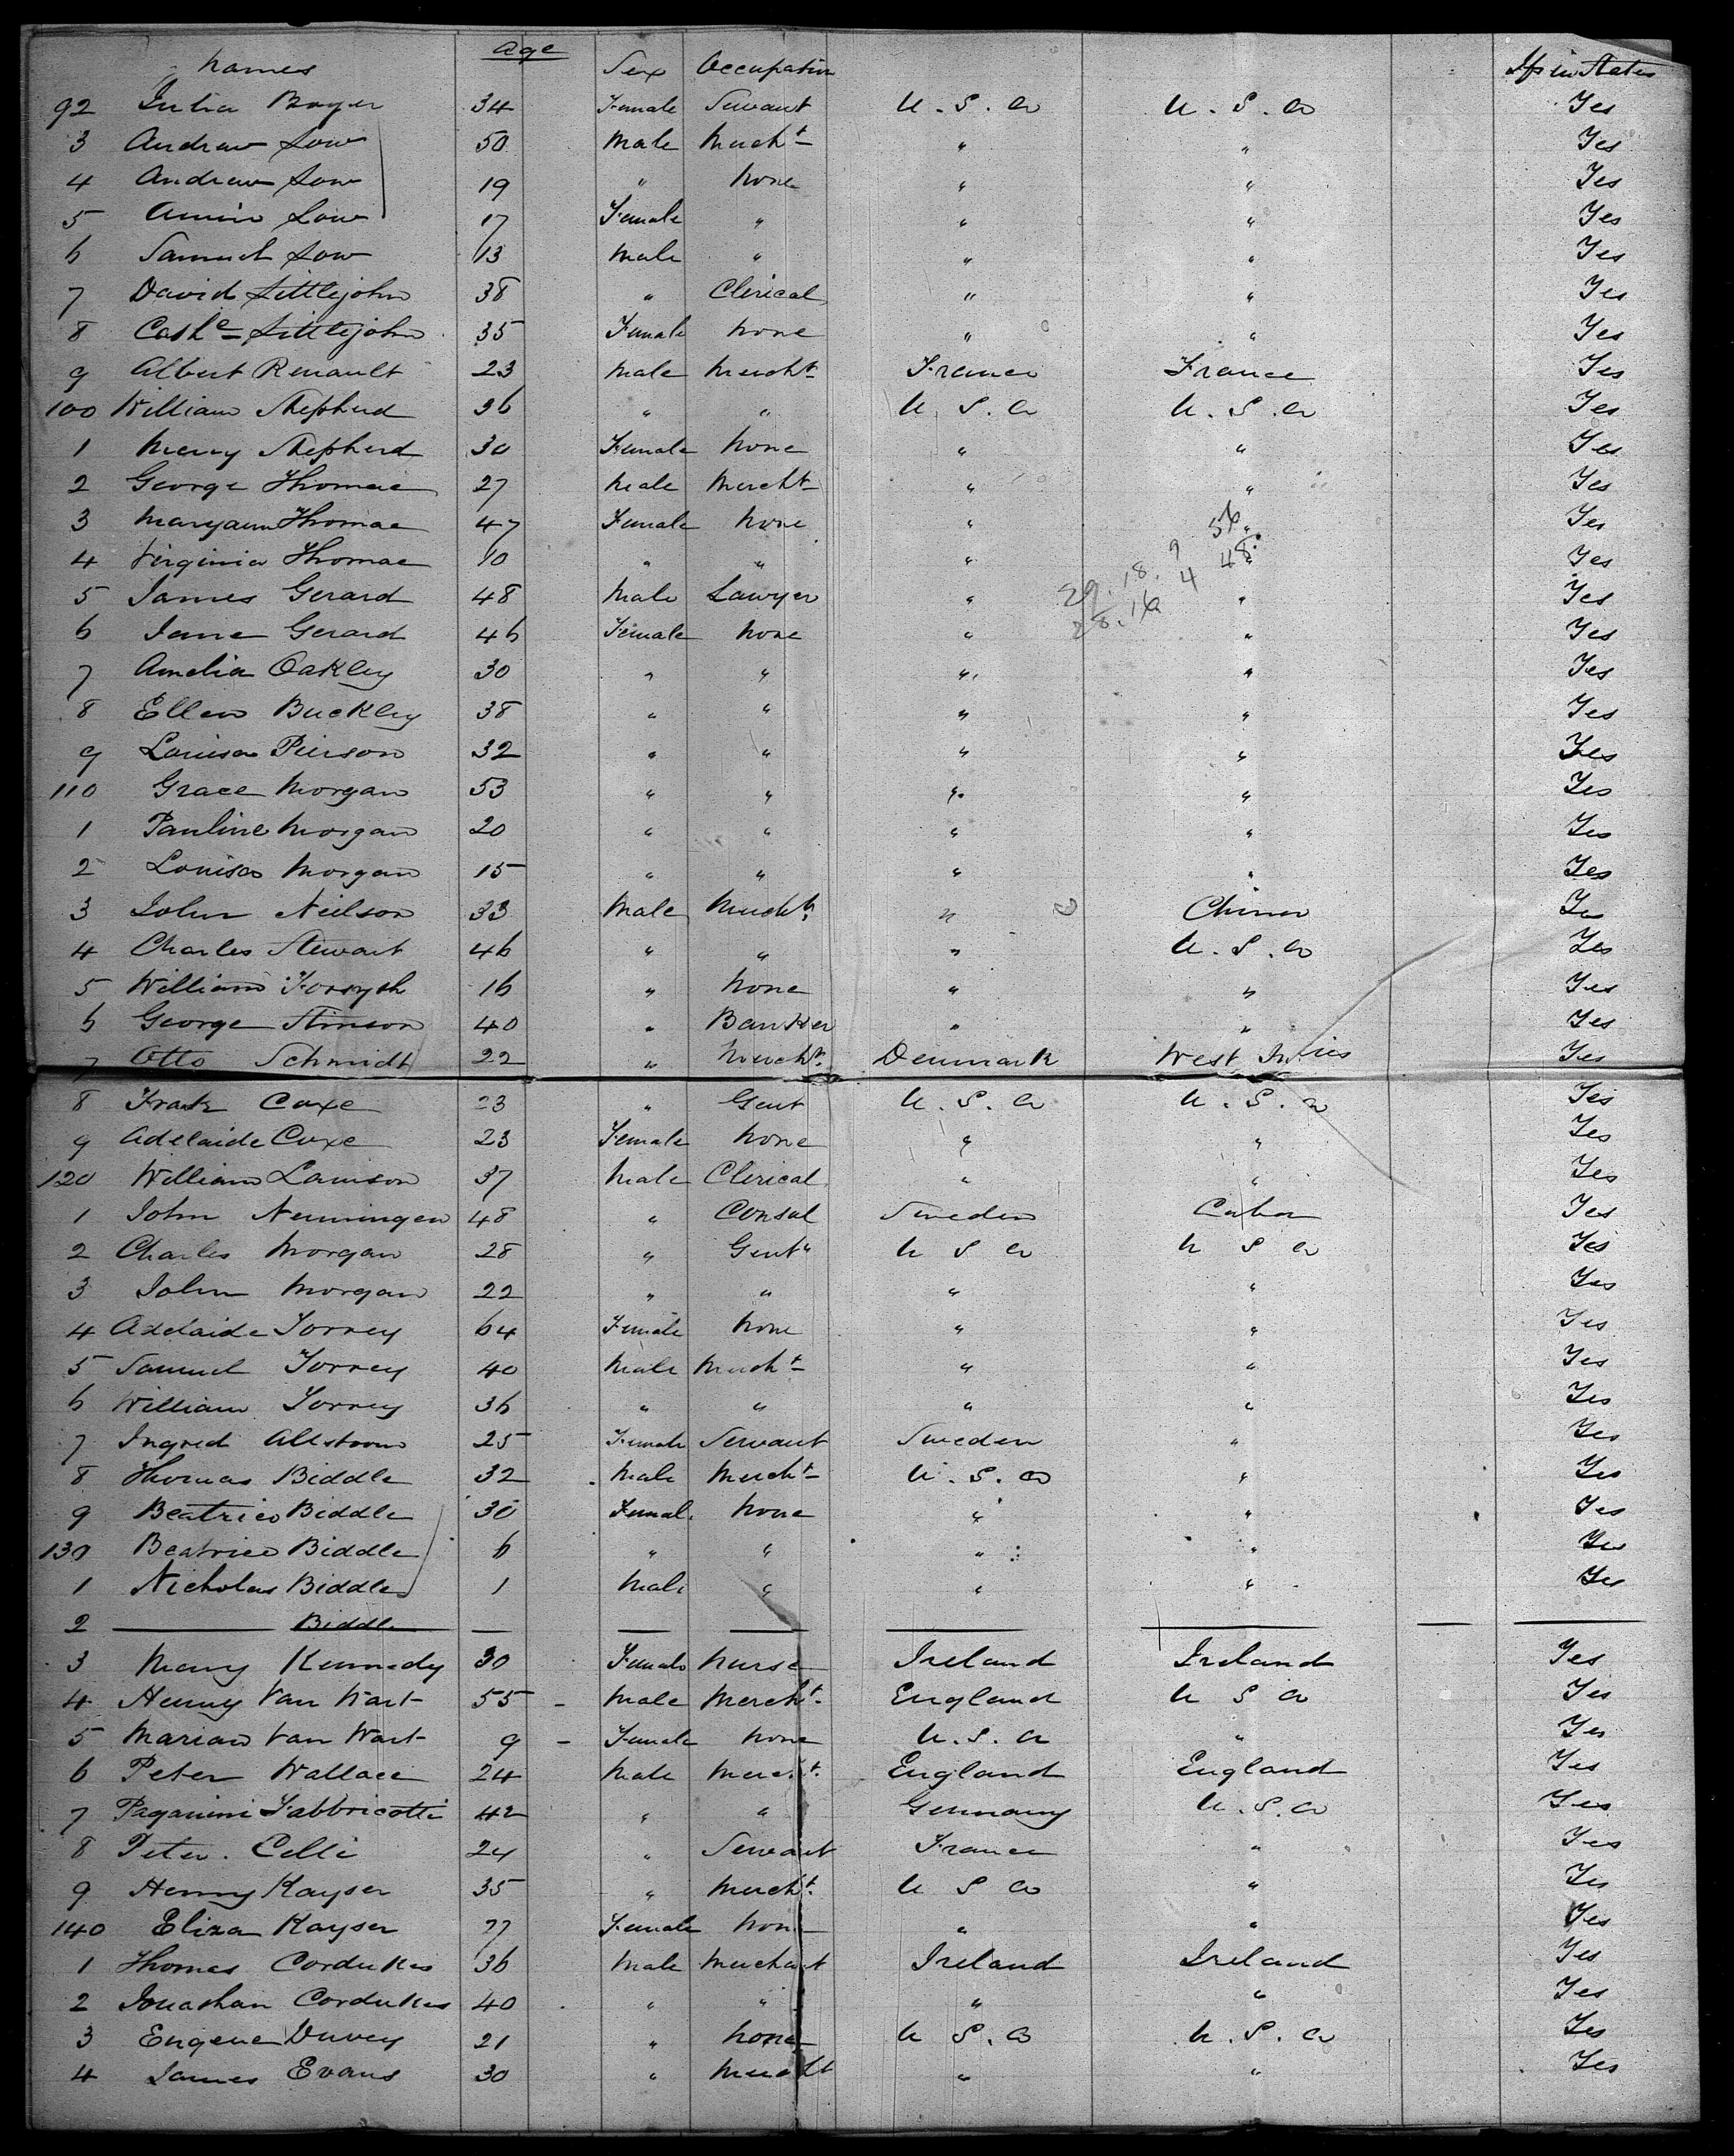 Names Age Sex Occupation If in States
92 Julia Boyer 34 Female Servant U.S.A U.S.A Yes
3 Andrew Low 50 Male Mercht " " Yes
4 Andrew Low 19 " None " " Yes
5 Annie Low 17 Female " " " Yes
6 Samuel Low 13 Male " " " Yes
7 David Littlejohn 38 " Clerical " " Yes
8 Cathe Littlejohn 35 Female None " " Yes
9 Albert Renault 23 Male Mercht France France Yes
100 William Shepherd 36 " " U.S.A U.S.A Yes
1 Mary Shepherd 30 Female None " " Yes
2 George Thomae 27 Male Mercht " " Yes
3 Maryann Thomae 47 Female None " " Yes
4 Virginia Thomae 10 " " " " Yes
5 James Gerard 48 Male Lawyer " " Yes
6 Jane Gerard 46 Female None " " Yes
7 Amelia Oakley 30 " " " " Yes
8 Ellen Buckley 38 " " " " Yes
9 Louisa Pierson 32 " " " " Yes
110 Grace Morgan 53 " " " " Yes
1 Pauline Morgan 20 " " " " Yes
2 Louisa Morgan 15 " " " " Yes
3 John Neilson 33 Male Mercht " China Yes
4 Charles Stewart 46 " " " U.S.A Yes
5 William Forsyth 16 " None " " Yes
6 George Stinson 40 " Banker " " Yes
7 Otto Schmidt 22 " Mercht Denmark West Indies Yes
8 Frank Coxe 23 " Gent U.S.A U.S.A Yes
9 Adelaide Coxe 23 Female None " " Yes
120 William Lamson 37 Male Clerical " " Yes
1 John Nenningen 48 " Consul Sweden Cuba Yes
2 Charles Morgan 28 " Gent U S A U S A Yes
3 John Morgan 22 " " " " Yes
4 Adelaide Torrey 64 Female None " " Yes
5 Samuel Torrey 40 Male Mercht " " Yes
6 William Torrey 36 " " " " Yes
7 Ingred Allstrom 25 Female Servant Sweden " Yes
8 Thomas Biddle 32 Male Mercht U.S.A " Yes
9 Beatrice Biddle 30 Female None " " Yes
130 Beatrice Biddle 6 " " " " Yes
1 Nicholas Biddle 1 Male " " " Yes
2 Biddle
3 Mary Kennedy 30 Female Nurse Ireland Ireland Yes
4 Henry Van Wart 55 Male Mercht England U S A Yes
5 Marian Van Wart 9 Female None U.S.A " Yes
6 Peter Wallace 24 Male Mercht England England Yes
7 Paganini Fabbricotti 42 " " Germany U.S.A Yes
8 Peter Celli 24 " Servant France " Yes
9 Henry Kayser 35 " Mercht U S A " Yes
140 Eliza Kayser 27 Female None " " Yes
1 Thomas Cordukes 36 Male Merchant Ireland Ireland Yes
2 Jonathan Cordukes 40 " " " " Yes
3 Eugene Duvey 21 " None U S.A U.S.A Yes
4 James Evans 30 " Mercht " " Yes